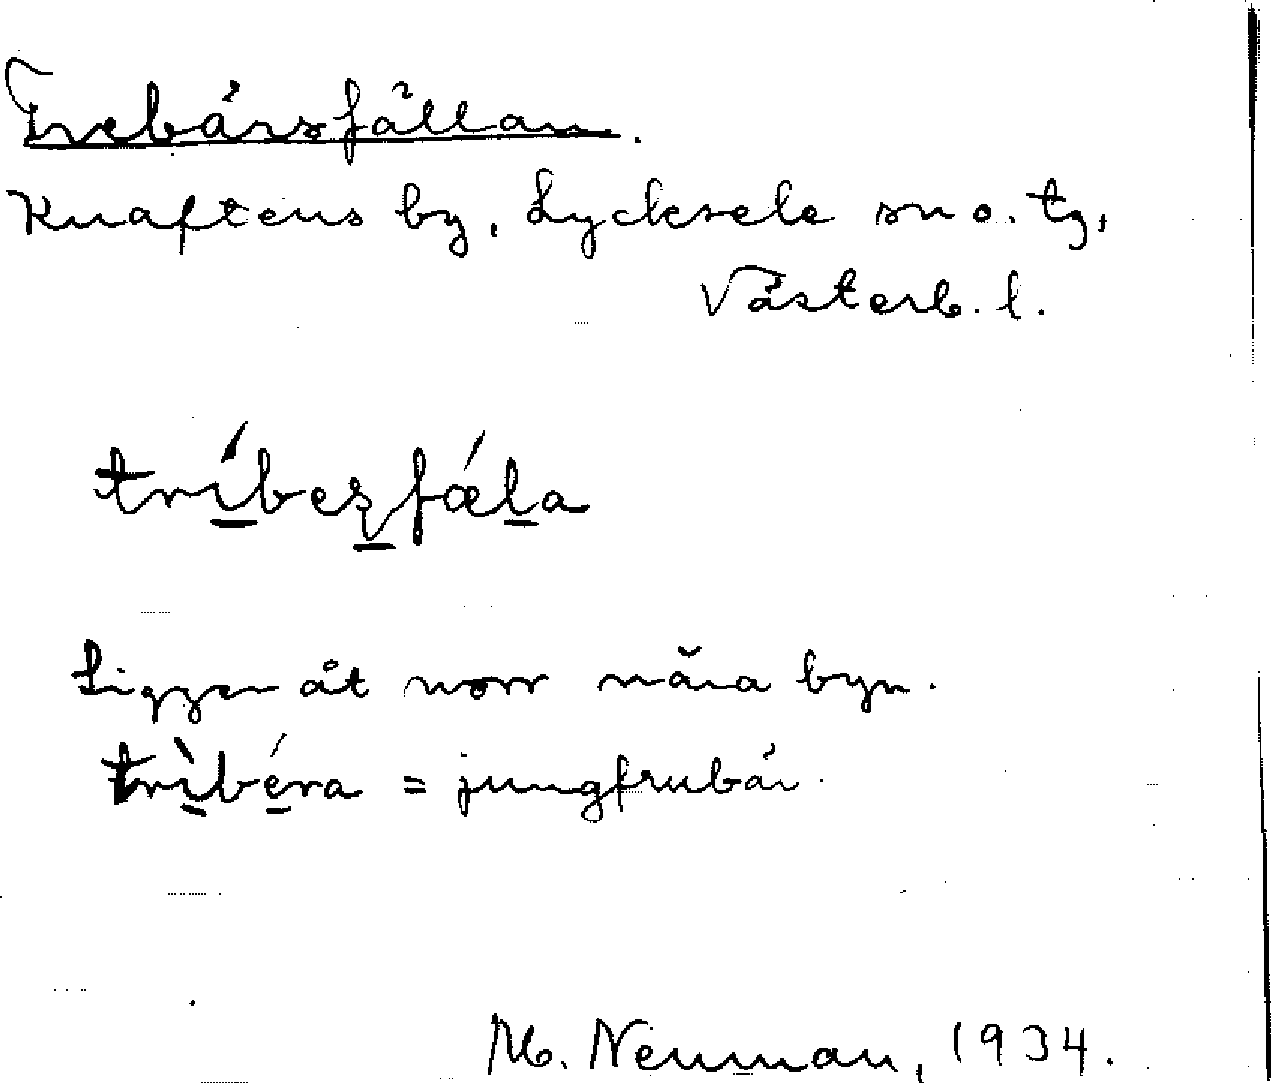 Trebärsfällan.
Knaftens by, Lycksele sn o. tg,
Västerb. l.
tríbesfǽla
Ligger åt norr nära byn.
trìbéra = jungfrubär.
M. Neuman, 1934.